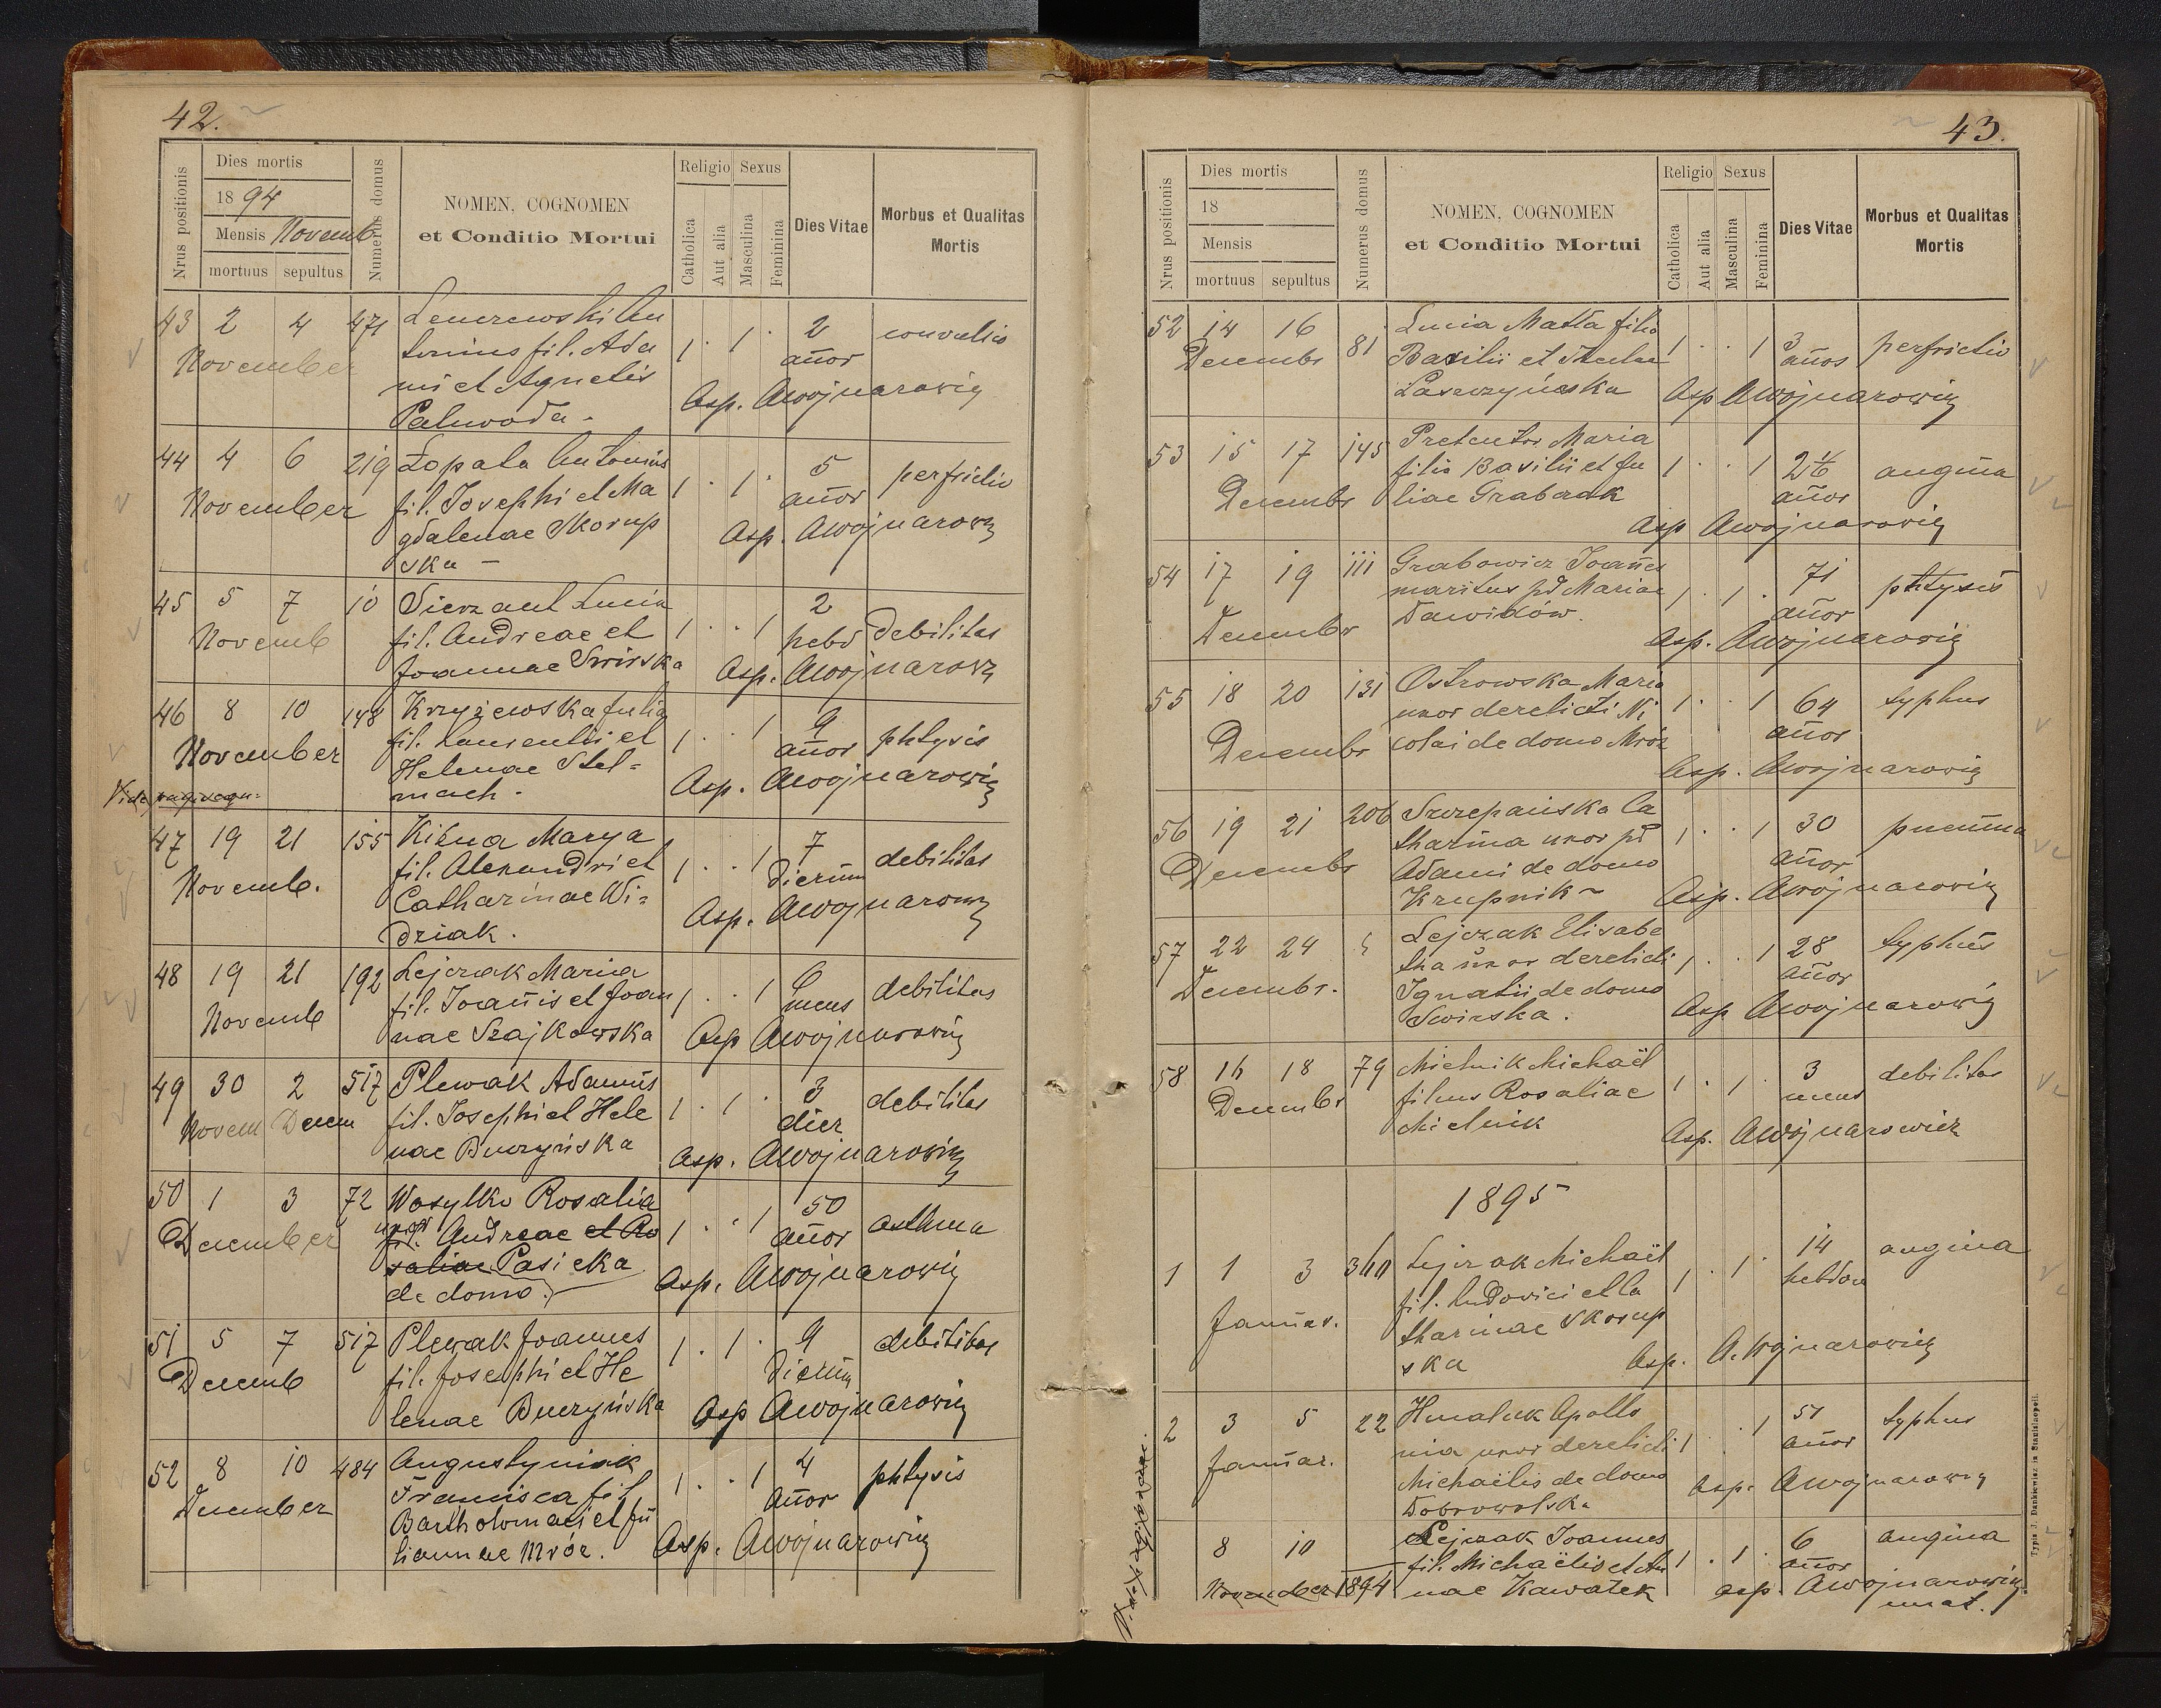 42.
Nrus positionis
Dies mortis
1894
Mensis Novemb
mortuus sepultus
Numerus domus
NOMEN, COGNOMEN
et Conditio Mortui
Religio
Catholica
Aut alia
Sexus
Masculina
Feminina
Dies Vitae
Morbus et Qualitas
Mortis
43 2 4 471
November
An
tonius fil. Ada
mi et Agnetis
Paluvoda -
1 . 1 . 2 convulsio
annor
Asp. AWojnarowicz
44 4 6 219
November
Łopata Antonius
fil. Josephi et Ma
gdalenae Skorup
ska -
1 . 1 . 5 perfrictio
annor
Asp. AWojnarowicz
45 5 7 10
Novemb
Sierzant Lucia
fil. Andreae et
Joannae Swirska
1 . . 1 2
hebd debilitas
Asp. AWojnarowicz
46 8 10 148
November
Krzyżewska Julia
fil. Laurentii et
Helenae Stel=
mach -
1 . . 1 9
annor phtysis
Asp. AWojnarowicz
Vide pag. sequ:
47 19 21 155
Novemb.
Marya
fil. Alexandri et
Catharinae Wi=
dziak .
1 . . 1 7
dierum debilitas
Asp. AWojnarowicz
48 19 21 192
Novemb
Lejczak Maria
fil. Joannis et Joan
nae Szajkowska
1 . . 1 6
mens debilitas
Asp AWojnarowicz
49 30 2 517
Novem Decem
Plewak Adamus
fil. Josephi et Hele
nae Buczyńska
1 . 1 . 3
dier debilitas
Asp. AWojnarowicz
50 1 3 72
December
Wasylko Rosalia
uxor
fil. Andreae et Ro
saliae Pasieka
de domo.
1 . . 1 50
annor asthma
Asp. AWojnarowicz
51 5 7 517
Decemb
Plewak Joannes
fil. Josephi et He
lenae Buczyńska
1 . 1 . 9
dierum debilitas
Asp AWojnarowicz
52 8 10 484
December
Augustyniak
Francisca fil
Bartholomaei et Ju
liannae Mróz.
1 . . 1 4
annor phtysis
Asp. AWojnarowicz
43.
Nrus positionis
Dies mortis
18
Mensis
mortuus sepultus
Numerus domus
NOMEN, COGNOMEN
et Conditio Mortui
Religio
Catholica
Aut alia
Sexus
Masculina
Feminina
Dies Vitae
Morbus et Qualitas
Mortis
52 14 16 81
Decembr
Lucia Matła filia
Basilii et Theclae
Laszczyńska
1 . . 1 3
annos perfrictio
Asp AWojnarowicz
53 15 17 145
Decembr
Maria
filia Basilii et Ju
liae Grabczak
1 . . 1 2 1/6
annor angina
Asp AWojnarowicz
54 17 19 111
Decembr
Grabowicz Joannes
maritus pd Mariae
Dawidów.
1 . 1 . 71
annor phtysis
Asp. AWojnarowicz
55 18 20 131
Decembr
Ostrowska Maria
uxor derelicti Ni
colai de domo Mróz
1 . . 1 64
annor typhus
Asp. AWojnarowicz
56 19 21 206
Decembr
Szczepańska Ca
tharina uxor pd
Adami de domo
Krupnik ~
1 . . 1 30
annor
Asp. AWojnarowicz
57 22 24
Decembr.
Lejczak Elisabe
tha uxor derelicti
Ignatii de domo
Swirska .
1 . . 1 28
annor typhus
Asp AWojnarowicz
58 16 18 79
Decembr
Mielnik Michaël
filius Rosaliae
Mielnik
1 . 1 . 3
mens debilitas
Asp. AWojnarowicz
1895
1 1 3
Januar.
Lejczak Michaël
fil. Ludovici et Ca
tharinae Skorup
ska
1 . 1 . 14
hebdom angina
Asp. A.Wojnarowicz
2 3 5 22
Januar.
Apollo
nia uxor derelicti
Michaëlis de domo
Dobrowolska
1 . . 1 51
annor typhus
Asp. AWojnarowicz
8 10
November 1894
Lejczak Joannes
fil. Michaëlis et An
nae Kawałek
1 . 1 . 6
annor angina
asp. AWojnarowicz
Typis J. Dankiewicz in Stanislaopoli.